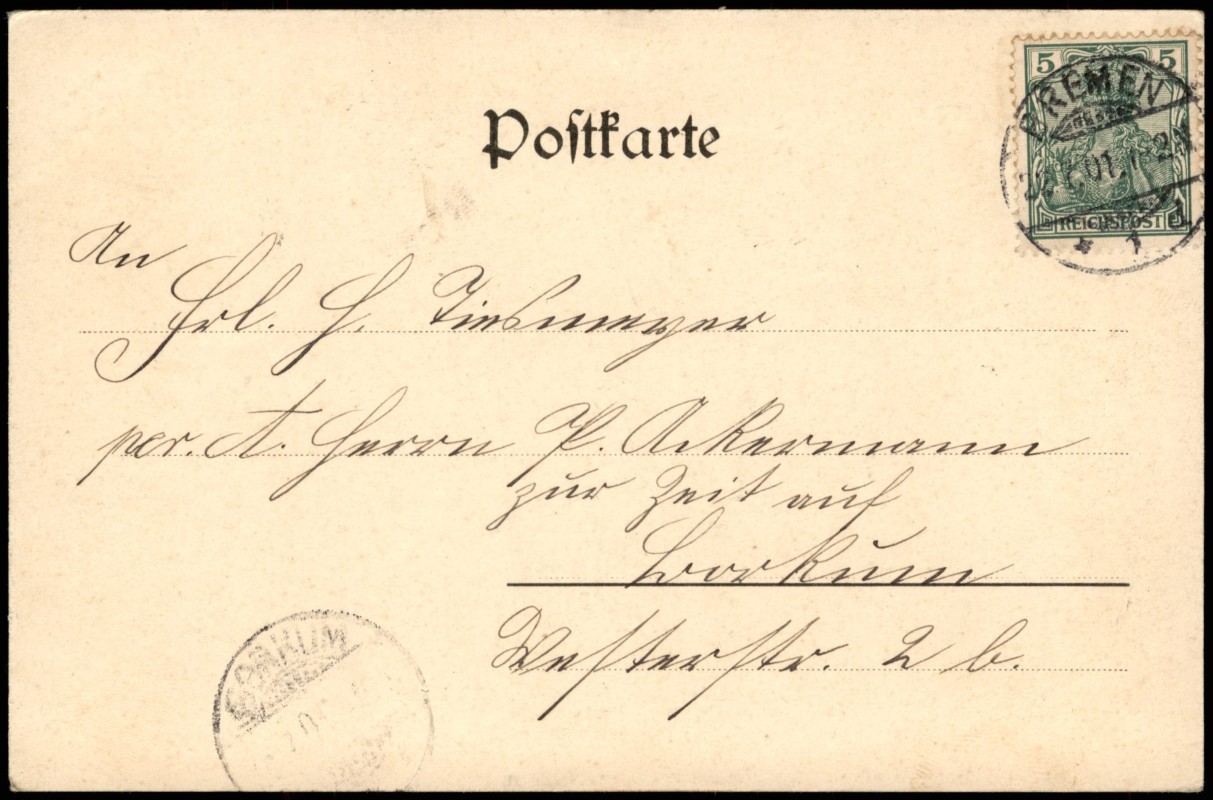 Postkarte
5 5
BREMEN
01.
REICHSPOST
* 1
An
Frl. H. Tiesmeyer
per. A. Herrn P. Ackermann
zur Zeit auf
Borkum
Westerstr. 2 b.
BORKUM